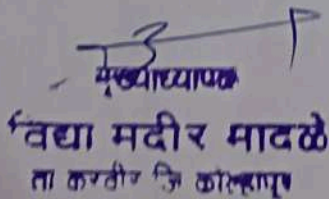 मुख्याध्यापक
विद्या मंदीर मादळे
ता करवीर जि कोल्हापूर